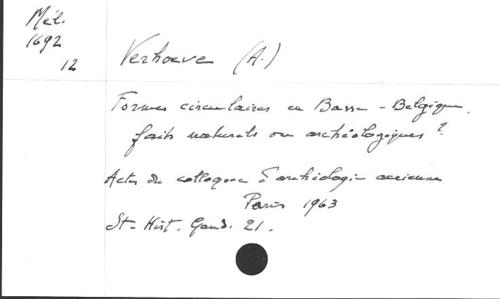 Mél.
1692
12
Verhoeve (A.)
Formes circulaires en Basse-Belgique.
faits naturels ou archéologiques ?
Actes du colloque d'archéologie aérienne
Paris 1963
St. Hist. Gand. 21.